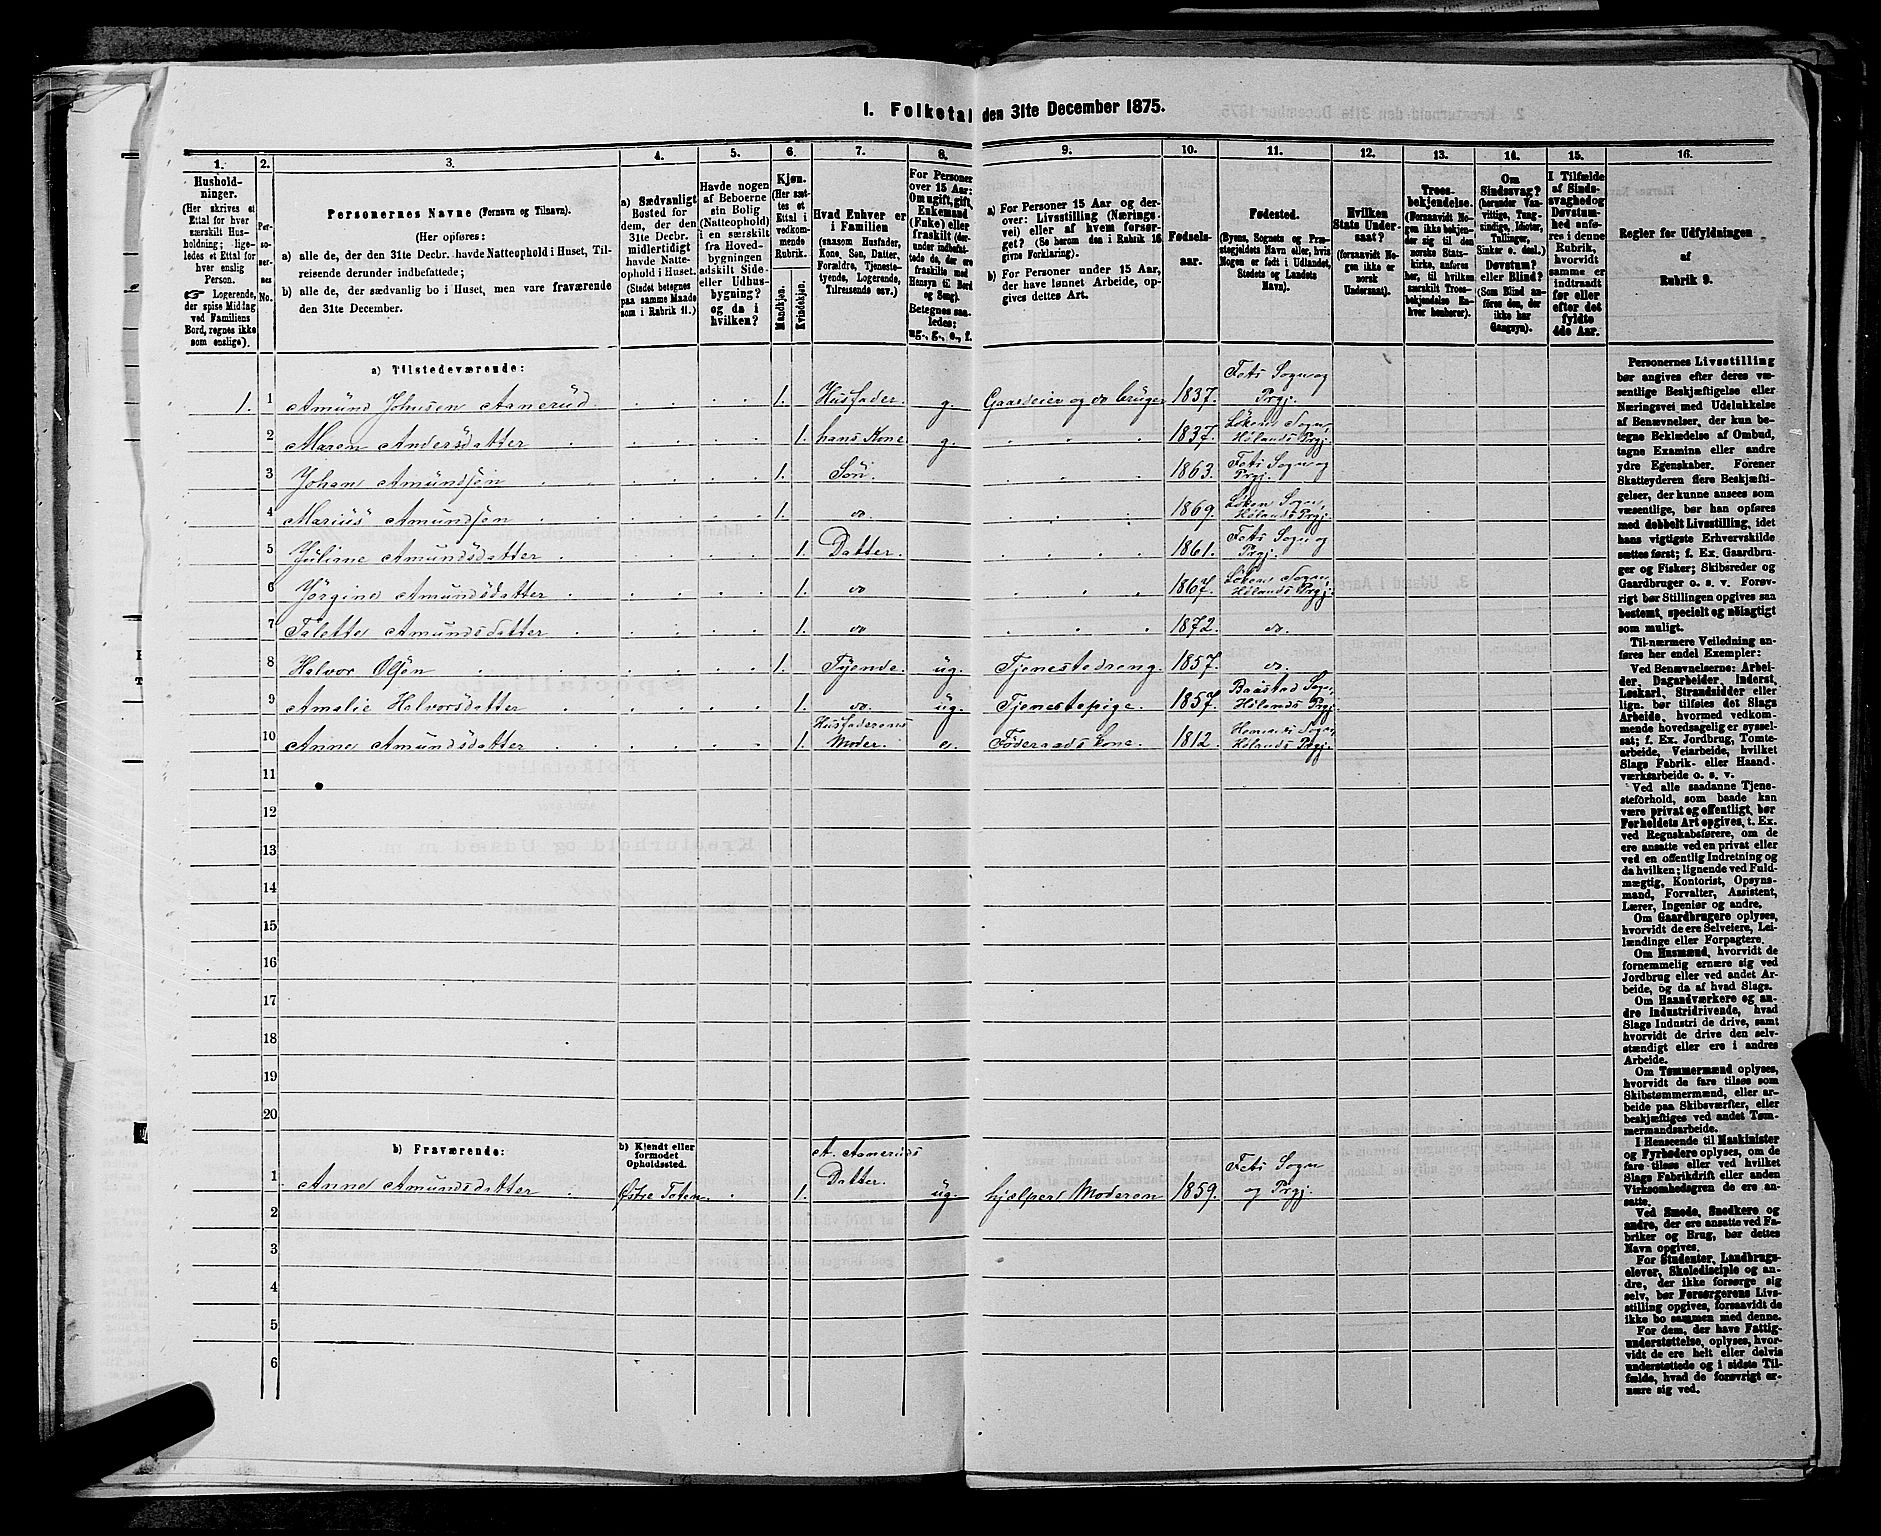 1. Folketal den 31te December 1875.
1.
Hushold-
ninger.
(Her skrives et
Ettal for hver
særskilt Hus-
holdning; lige-
ledes et Ettal for
hver enslig
Person.
Logerende,
der spise Middag
ved Familiens
Bord, regnes ikke
som enslige).
2.
Per-
so-
ner-
nes
No.
3.
Personernes Navne (Fornavn og Tilnavn).
(Her opføres:
a) alle de, der den 31te Decbr. havde Natteophold i Huset, Til-
reisende derunder indbefattede;
b) alle de, der sædvanlig bo i Huset, men vare fraværende
den 31te December.
4.
a) Sædvanligt
Bosted for
dem, der den
31te Decbr.
midlertidigt
havde Natte-
ophold i Huset.
(Stedet betegnes
paa samme Maade
som i Rubrik 11.)
5.
Havde nogen
af Beboerne
sin Bolig
(Natteophold)
i en særskilt
fra Hoved-
bygningen
adskilt Side-
eller Udhus-
bygning?
og da i
hvilken?
6.
Kjøn.
(Her sæt-
tes et
Ettal i
vedkom-
mende
Rubrik.
Mandkjøn.
Kvindekjøn.
7.
Hvad Enhver er
i Familien
(saasom Husfader,
Kone, Søn, Datter,
Forældre, Tjeneste-
tyende, Logerende,
Tilreisende osv.)
8.
For Personer
over 15 Aar:
Om ugift, gift,
Enkemand
(Enke) eller
fraskilt (der-
under indbefat-
tede de, der ere
fraskilte med
Hensyn til Bord
og Seng).
Betegnes saa-
ledes:
ug., g., e., f.
9.
a) For Personer 15 Aar og der-
over: Livsstilling (Nærings-
vei) eller af hvem forsør-
get? (Se herom den i Rubrik 16
givne Forklaring).
b) For Personer under 15 Aar,
der have lønnet Arbeide, op-
gives dettes Art.
10.
Fødsels-
aar.
11.
Fødested.
(Byens, Sognets og Præ-
stegjeldets Navn eller, hvis
Nogen er født i Udlandet,
Stedets og Landets
Navn).
12.
Hvilken
Stats Under-
saat?
(forsaavidt No-
gen ikke er
norsk
Undersaat).
13.
Troes-
bekjendelse.
(Forsaavidt No-
gen ikke bekjen-
der sig til den
norske Stats-
kirke, anføres
her, til hvilken
særskilt Troes-
bekjendelse En-
hver henhører).
14.
Om
Sindssvag?
(herunder Van-
vittige, Tung-
sindige, Idioter,
Tullinger,
Sinker o. desl.)
Døvstum?
eller Blind?
(Som Blind an-
føres den, der
ikke har
Gangsyn).
15.
I Tilfælde
af Sinds-
svaghed og
Døvstum-
hed anfø-
res i denne
Rubrik,
hvorvidt
samme er
indtraadt
før eller
efter det
fyldte
4de Aar.
16.
Regler for Udfyldningen
af
Rubrik 9.
a) Tilstedeværende:
1. 1 Amund Johnsen Aanerud . . . . 1. Husfader. g. Gaardeier og do bruger 1837. Fets Sogn og Prgj.
2 Maren Andersdatter 1. hans Kone g. 1837. Løkens Sogn, Hølands Prgj.
3 Johan Amundsen 1. Søn. 1863. Fets Sogn og Prgj.
4 Marius Amundsen 1. do. 1869. Løken Sogn, Hølands Prgj.
5 Juliane Amundsdatter 1. Datter. 1861. Fets Sogn og Prgj.
6 Jørgine Amundsdatter 1. do 1867. Løkens Sogn, Hølands Prgj.
7 Talette Amundsdatter 1. do 1872. do.
8 Halvor Olsen 1. Tyende. ug. Tjenestedreng 1857. do.
9 Amalie Halvorsdatter 1. do. ug. Tjenestepige. 1857. Baastad Sogn, Hølands Prgj.
10 Anne Amundsdatter 1. Husfaderens Moder. e. Føderaads Kone. 1812. Hemnes Sogn, Hølands Prgj.
11
12
13
14
15
16
17
18
19
20
b) Fraværende:
b) Kjendt eller
formodet
Opholdssted.
1 Anne Amundsdatter Østre Toten. 1. A. Aaneruds Datter. ug. hjælper Moderen 1859. Fets Sogn og Prgj.
2
3
4
5
6
Personernes Livsstilling
bør angives efter deres væ-
sentlige Beskjæftigelse eller
Næringsvei med Udelukkelse
af Benævnelser, der kun be-
tegne Beklædelse af Ombud,
tagne Examina eller andre
ydre Egenskaber. Forener
Skatteyderen flere Beskjæfti-
gelser, der kunne ansees som
væsentlige, bør han opføres
med dobbelt Livsstilling, idet
hans vigtigste Erhvervskilde
sættes først; f. Ex. Gaardbru-
ger og Fisker; Skibsreder og
Gaardbruger o. s. v. Forøv-
rigt bør Stillingen opgives saa
bestemt, specielt og nøiagtigt
som muligt.
Til nærmere Veiledning an-
føres her endel Exempler:
Ved Benævnelserne: Arbei-
der, Dagarbeider, Inderst,
Løskarl, Strandsidder eller
lign. bør tilføies det Slags
Arbeide, hvormed vedkom-
mende hovedsagelig er syssel-
sat; f. Ex. Jordbrug, Tomte-
arbeide, Veiarbeide, hvilket
Slags Fabrik- eller Haand-
værksarbeide o. s. v.
Ved alle saadanne Tjene-
steforhold, som baade kan
være privat og offentligt, bør
Forholdets Art opgives, t. Ex.
ved Regnskabsførere, om de
ere ansatte ved en privat eller
ved en offentlig Indretning og
da hvilken; lignende ved Fuld-
mægtig, Kontorist, Opsyns-
mand, Forvalter, Assistent,
Lærer, Ingeniør og andre.
Om Gaardbrugere oplyses,
hvorvidt de ere Selveiere, Lei-
lændinge eller Forpagtere.
Om Husmænd, hvorvidt de
fornemmelig ernære sig ved
Jordbrug eller ved andet Ar-
beide, og da af hvad Slags.
Om Haandværkere og an-
dre Industridrivende, hvad
Slags Industri de drive, samt
hvorvidt de drive den selv-
stændigt eller ere i andres
Arbeide.
Om Tømmermænd oplyses,
hvorvidt de fare tilsøs som
Skibstømmermænd, eller ar-
beide paa Skibsværfter, eller
beskjæftiges ved andet Tøm-
mermandsarbeide.
I Henseende til Maskinister
og Fyrbødere oplyses, om de
fare tilsøs eller ved hvilket
Slags Fabrikdrift eller anden
Virksomhedsgren de ere an-
satte.
Ved Smede, Snedkere og
andre, der ere ansatte ved Fa-
briker og Brug, bør dettes
Navn opgives.
For Studenter, Landbrugs-
elever, Skoledisciple og an-
dre, der ikke forsørge sig
selv, bør Forsørgerens Livs-
stilling opgives, forsaavidt de
ikke bo sammen med denne.
For dem, der have Fattig-
understøttelse, oplyses, hvor-
vidt de ere helt eller delvis
understøttede og i sidste Til-
fælde, hvad de forøvrigt er-
nære sig ved.